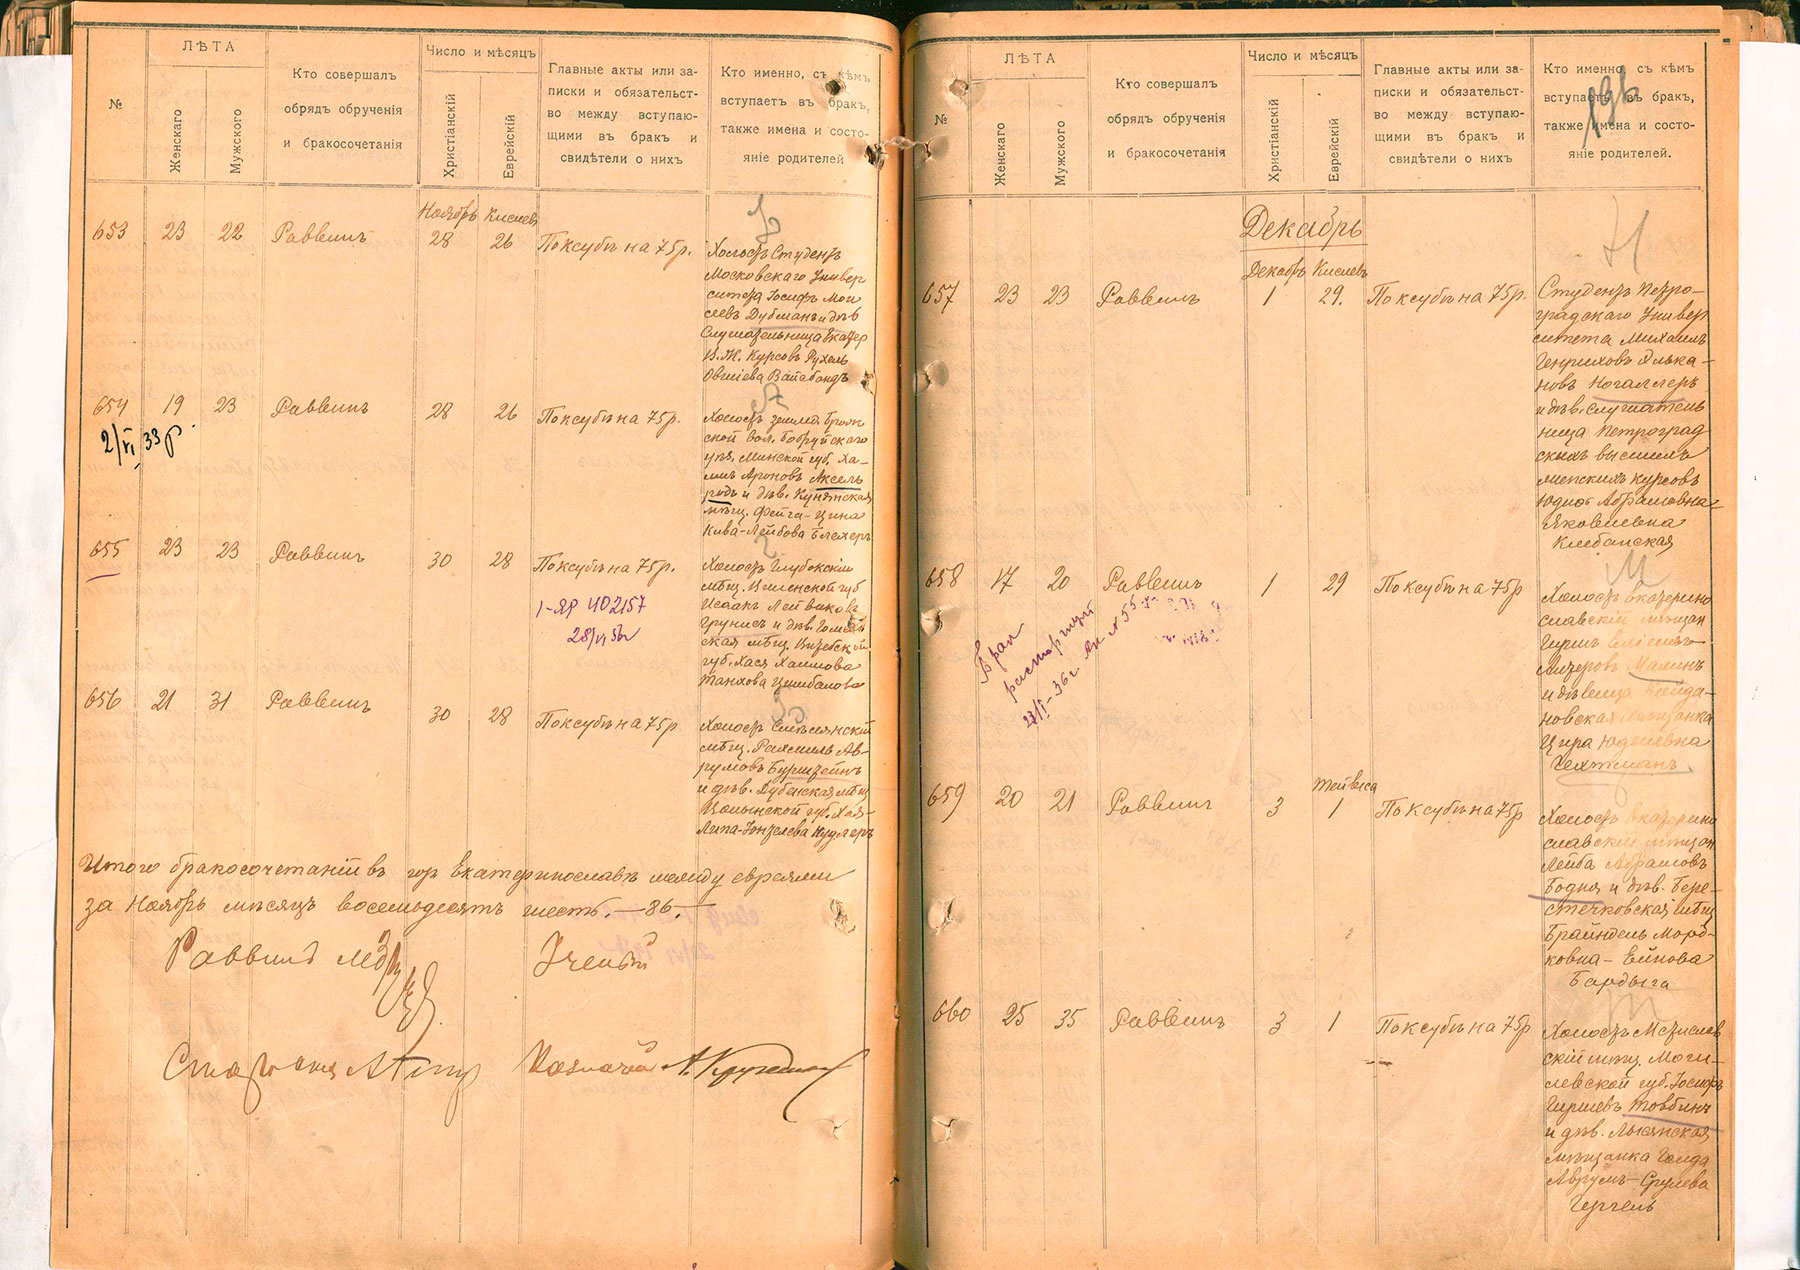 №
ЛѢТА
Женскаго
Мужского
Кто совершалъ
обрядъ обрученія
и бракосочетанія
Число и мѣсяцъ
Христіанскій
Еврейскій
Главные акты или за-
писки и обязательст-
во между вступаю-
щими въ бракъ и
свидѣтели о нихъ
Кто именно, съ кѣмъ
вступаетъ въ бракъ,
также имена и состо-
яніе родителей
Ноябрь Кислевъ
653 23 22 Раввинъ 28 26 По ксубѣ на 75 р.
Холостъ Студентъ
Московскаго Универ
ситета Іосифъ Мои
сеевъ Дубманъ и дѣв
Слушательница Екатер
В. Ж. Курсовъ Рухель
Овшіева Вайсбандъ
654 19 23 Раввинъ 28 26 По ксубѣ на 75 р.
2/VI 33 р
Холостъ
ской вол. Бобруйскаго
уѣз. Минской губ. Ха-
имъ Ароновъ Аксель
родъ и дѣв.
мѣщ. Фейга-Цина
Кива-Лейбова Блехеръ
655 23 23 Раввинъ 30 28 По ксубѣ на 75 р.
1-ЯР 402157
28/VI 56
Холостъ Глубокскій
мѣщ. Виленской губ
Исаакъ Лейвиковъ
Грунисъ и дѣв.
ская мѣщ.
губ. Хася Хаимова
Танхова Цимбалова
656 21 31 Раввинъ 30 28 По ксубѣ на 75 р
Холостъ
мѣщ. Рахмиль Ав-
румовъ Бурштейнъ
и дѣв. Дубенская мѣщ
Волынской губ. Хая-
Липа-Іонтелева Кудлеръ
Итого бракосочетаній въ гор Екатеринославѣ между евреями
за Ноябрь мѣсяцъ восемьдесятъ шесть. — 86. —
Раввинъ
Ученый
Староста
Казначей
№
ЛѢТА
Женскаго
Мужского
Кто совершалъ
обрядъ обрученія
и бракосочетанія
Число и мѣсяцъ
Христіанскій
Еврейскій
Главные акты или за-
писки и обязательст-
во между вступаю-
щими въ бракъ и
свидѣтели о нихъ
Кто именно, съ кѣмъ
вступаетъ въ бракъ,
также имена и состо-
яніе родителей.
Декабрь
Декабрь Кислевъ
657 23 23 Раввинъ 1 29. По ксубѣ на 75 р.
Студентъ Петро-
градскаго Универ
ситета Михаилъ
Генриховъ Элька-
новъ Ногаллеръ
и дѣв. слушатель
ница Петроград
скихъ высшихъ
женскихъ курсовъ
Абрамовна-
Яковлевна
Клебанская
658 17 20 Раввинъ 1 29 По ксубѣ на 75 р
Брак
расторгнут
23/I-36 г. Ак № 55
Холостъ Екатерино
славскій мѣщан
Гиршъ
Лазеровъ Малинъ
и дѣвица Кайда-
новская мѣщанка
Цира Юделевна
Чехтманъ
Тейвеса
659 20 21 Раввинъ 3 1 По ксубѣ на 75 р
Холостъ Екатерино
славскій мѣщан
Лейба Абрамовъ
Бодня и дѣв. Бере-
стечковская мѣщ
Брайндель Морд-
ковна-Ейнова
Бардыга
660 25 35 Раввинъ 3 1 По ксубѣ на 75 р
Холостъ Мстислав
скій мѣщ. Моги-
левской губ. Іосифъ
Гиршевъ Товбинъ
и дѣв. Лысянская
мѣщанка Голда
Аврумъ-Срулева
Герчель